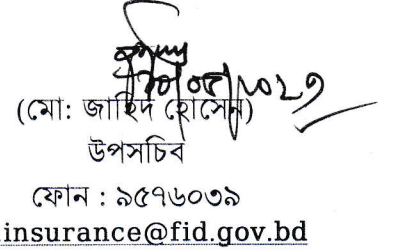 (মো: জাহিদ হোসেন)
উপসচিব
ফোন : ৯৫৭৬০৩৯
insurance@fid.gov.bd